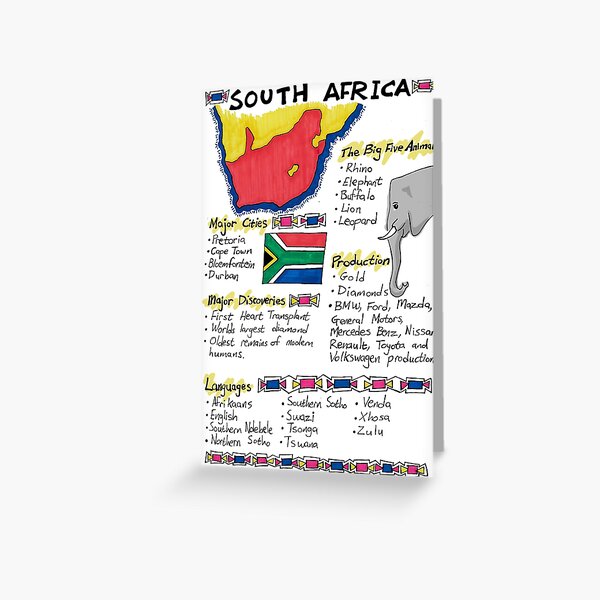 SOUTH AFRICA
The Big Five Animal
• Rhino
• Elephant
• Buffalo
• Lion
• Leopard
Major Cities
• Pretoria
• Cape Town
• Bloemfontein
• Durban
Production
• Gold
• Diamonds
• BMW, Ford, Mazda,
General Motors,
Mercedes Benz, Nissan
Renault, Toyota and
Volkswagen production
Major Discoveries
• First Heart Transplant
• Worlds largest diamond
• Oldest remains of modern
humans.
Languages
• Afrikaans
• English
• Southern Ndebele
• Northern Sotho
• Southern Sotho
• Swazi
• Tsonga
• Tswana
• Venda
• Xhosa
• Zulu